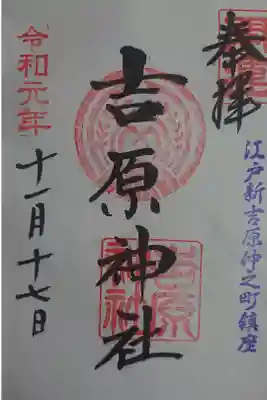 奉拝
江戸新吉原仲之町鎮座
吉原神社
吉原神社
令和元年
十一月十七日